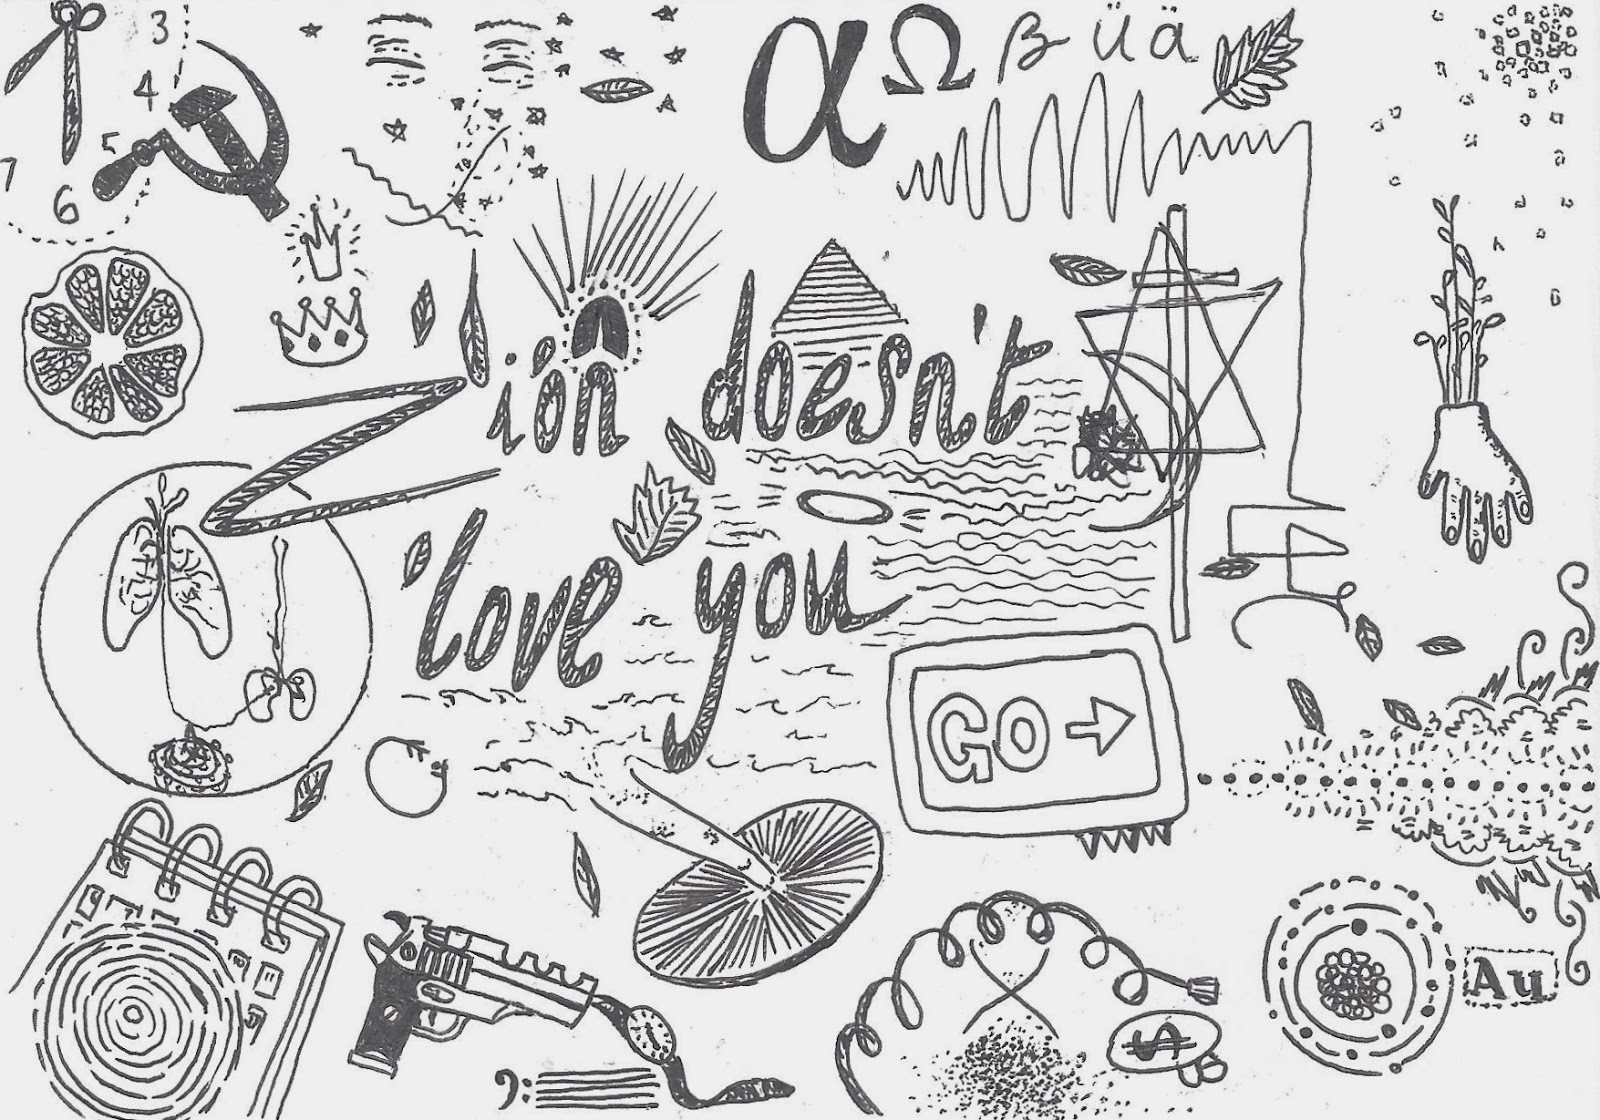 3
4
5
7
6
α Ω β ü ä
Zión doesn't
love you
GO →
$
Au